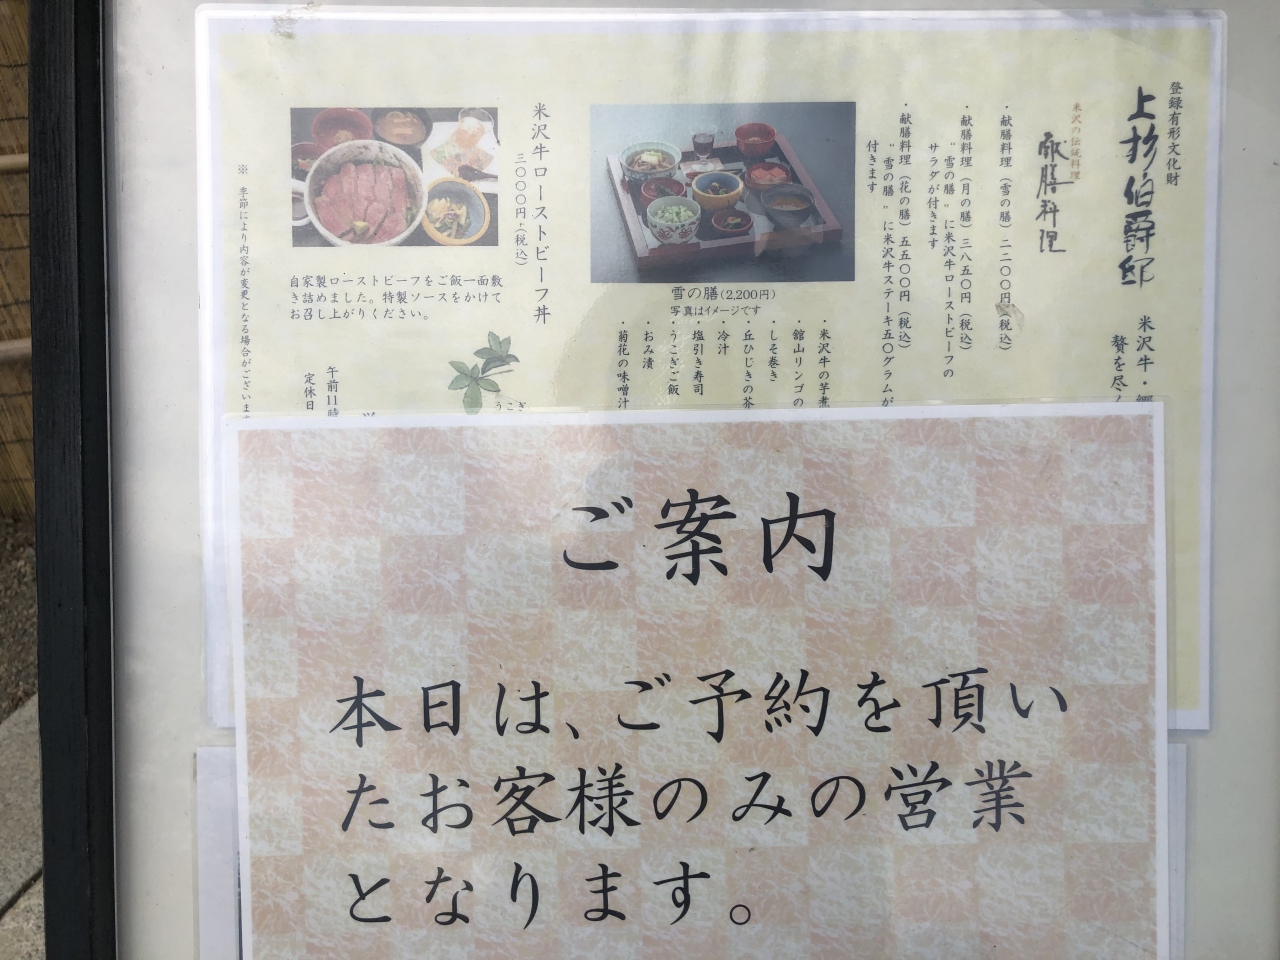 登録有形文化財
上杉伯爵邸
米沢牛・郷
贅を尽く
米沢の伝統料理
献膳料理
・献膳料理（雪の膳）二二〇〇円（税込）
・献膳料理（月の膳）三八五〇円（税込）
“雪の膳”に米沢牛ローストビーフの
サラダが付きます
・献膳料理（花の膳）五五〇〇円（税込）
“雪の膳”に米沢牛ステーキ五〇グラムが
付きます
雪の膳(2,200円)
写真はイメージです
・米沢牛の芋煮
・舘山リンゴの
・しそ巻き
・丘ひじきの茶
・冷汁
・塩引き寿司
・うこぎご飯
・おみ漬
・菊花の味噌汁
米沢牛ローストビーフ丼
三〇〇〇円（税込）
自家製ローストビーフをご飯一面敷
き詰めました。特製ソースをかけて
お召し上がりください。
うこぎ
午前11時
定休日
※ 季節により内容が変更となる場合がございます
ご案内
本日は、ご予約を頂い
たお客様のみの営業
となります。